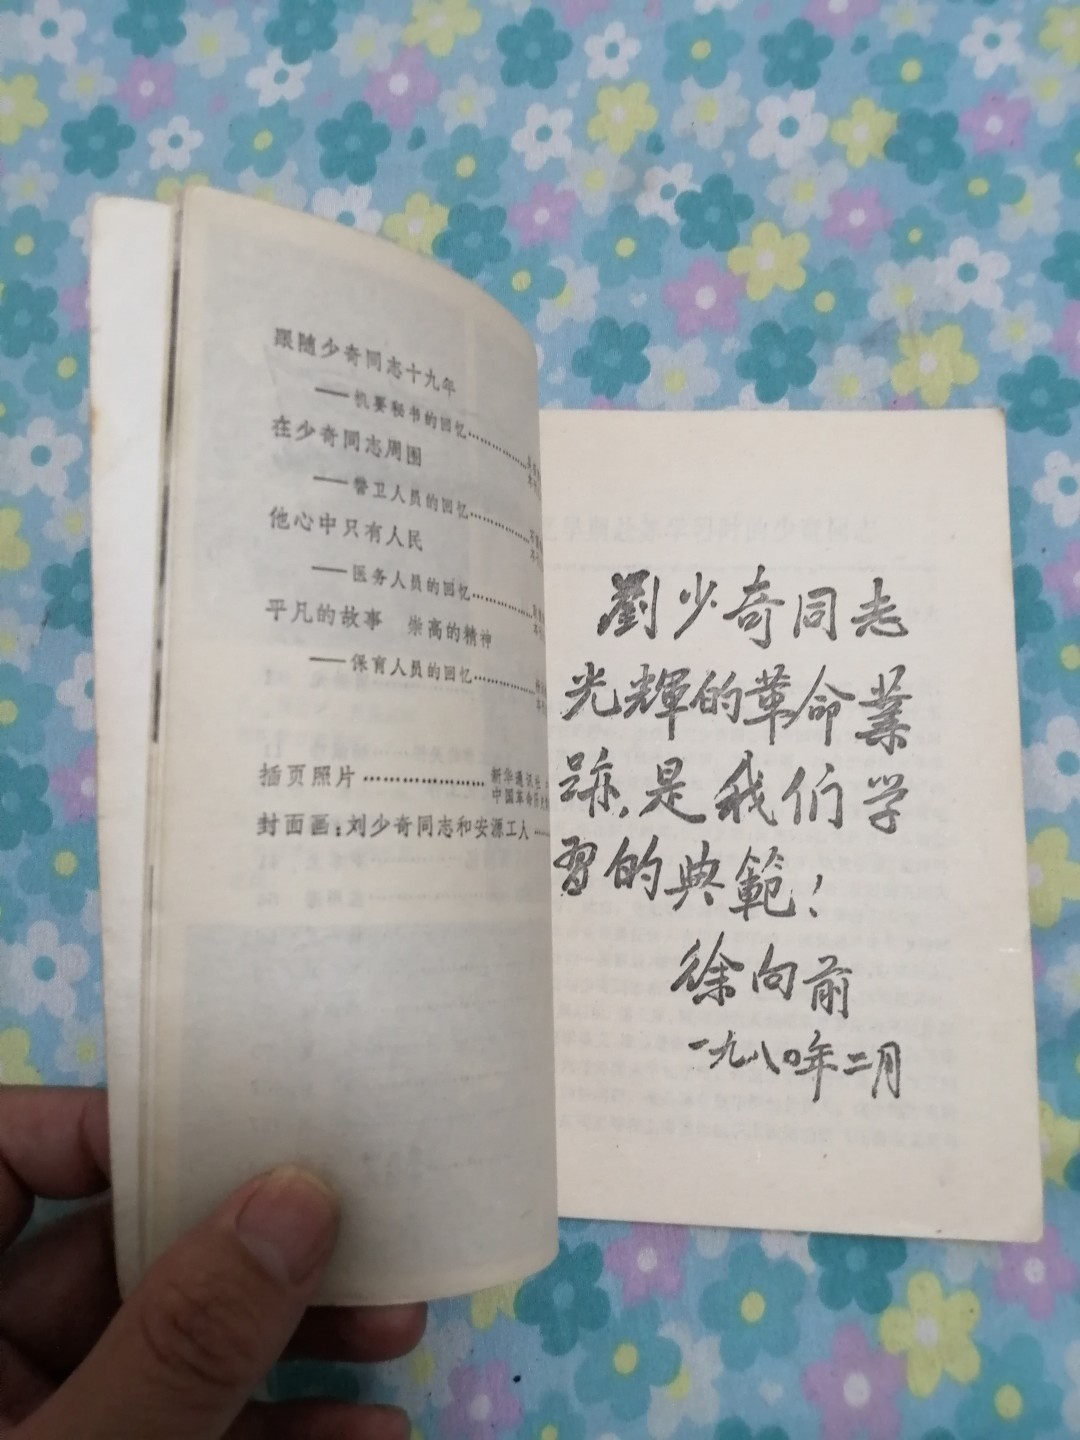 跟随少奇同志十九年
——机要秘书的回忆………………
在少奇同志周围
——警卫人员的回忆………………
他心中只有人民
——医务人员的回忆………………
平凡的故事 崇高的精神
——保育人员的回忆………………
插页照片…………………新华通讯社
中国革命
封面画：刘少奇同志和安源工人——
劉少奇同志
光輝的革命業
跡，是我们学
習的典範！
徐向前
一九八〇年二月